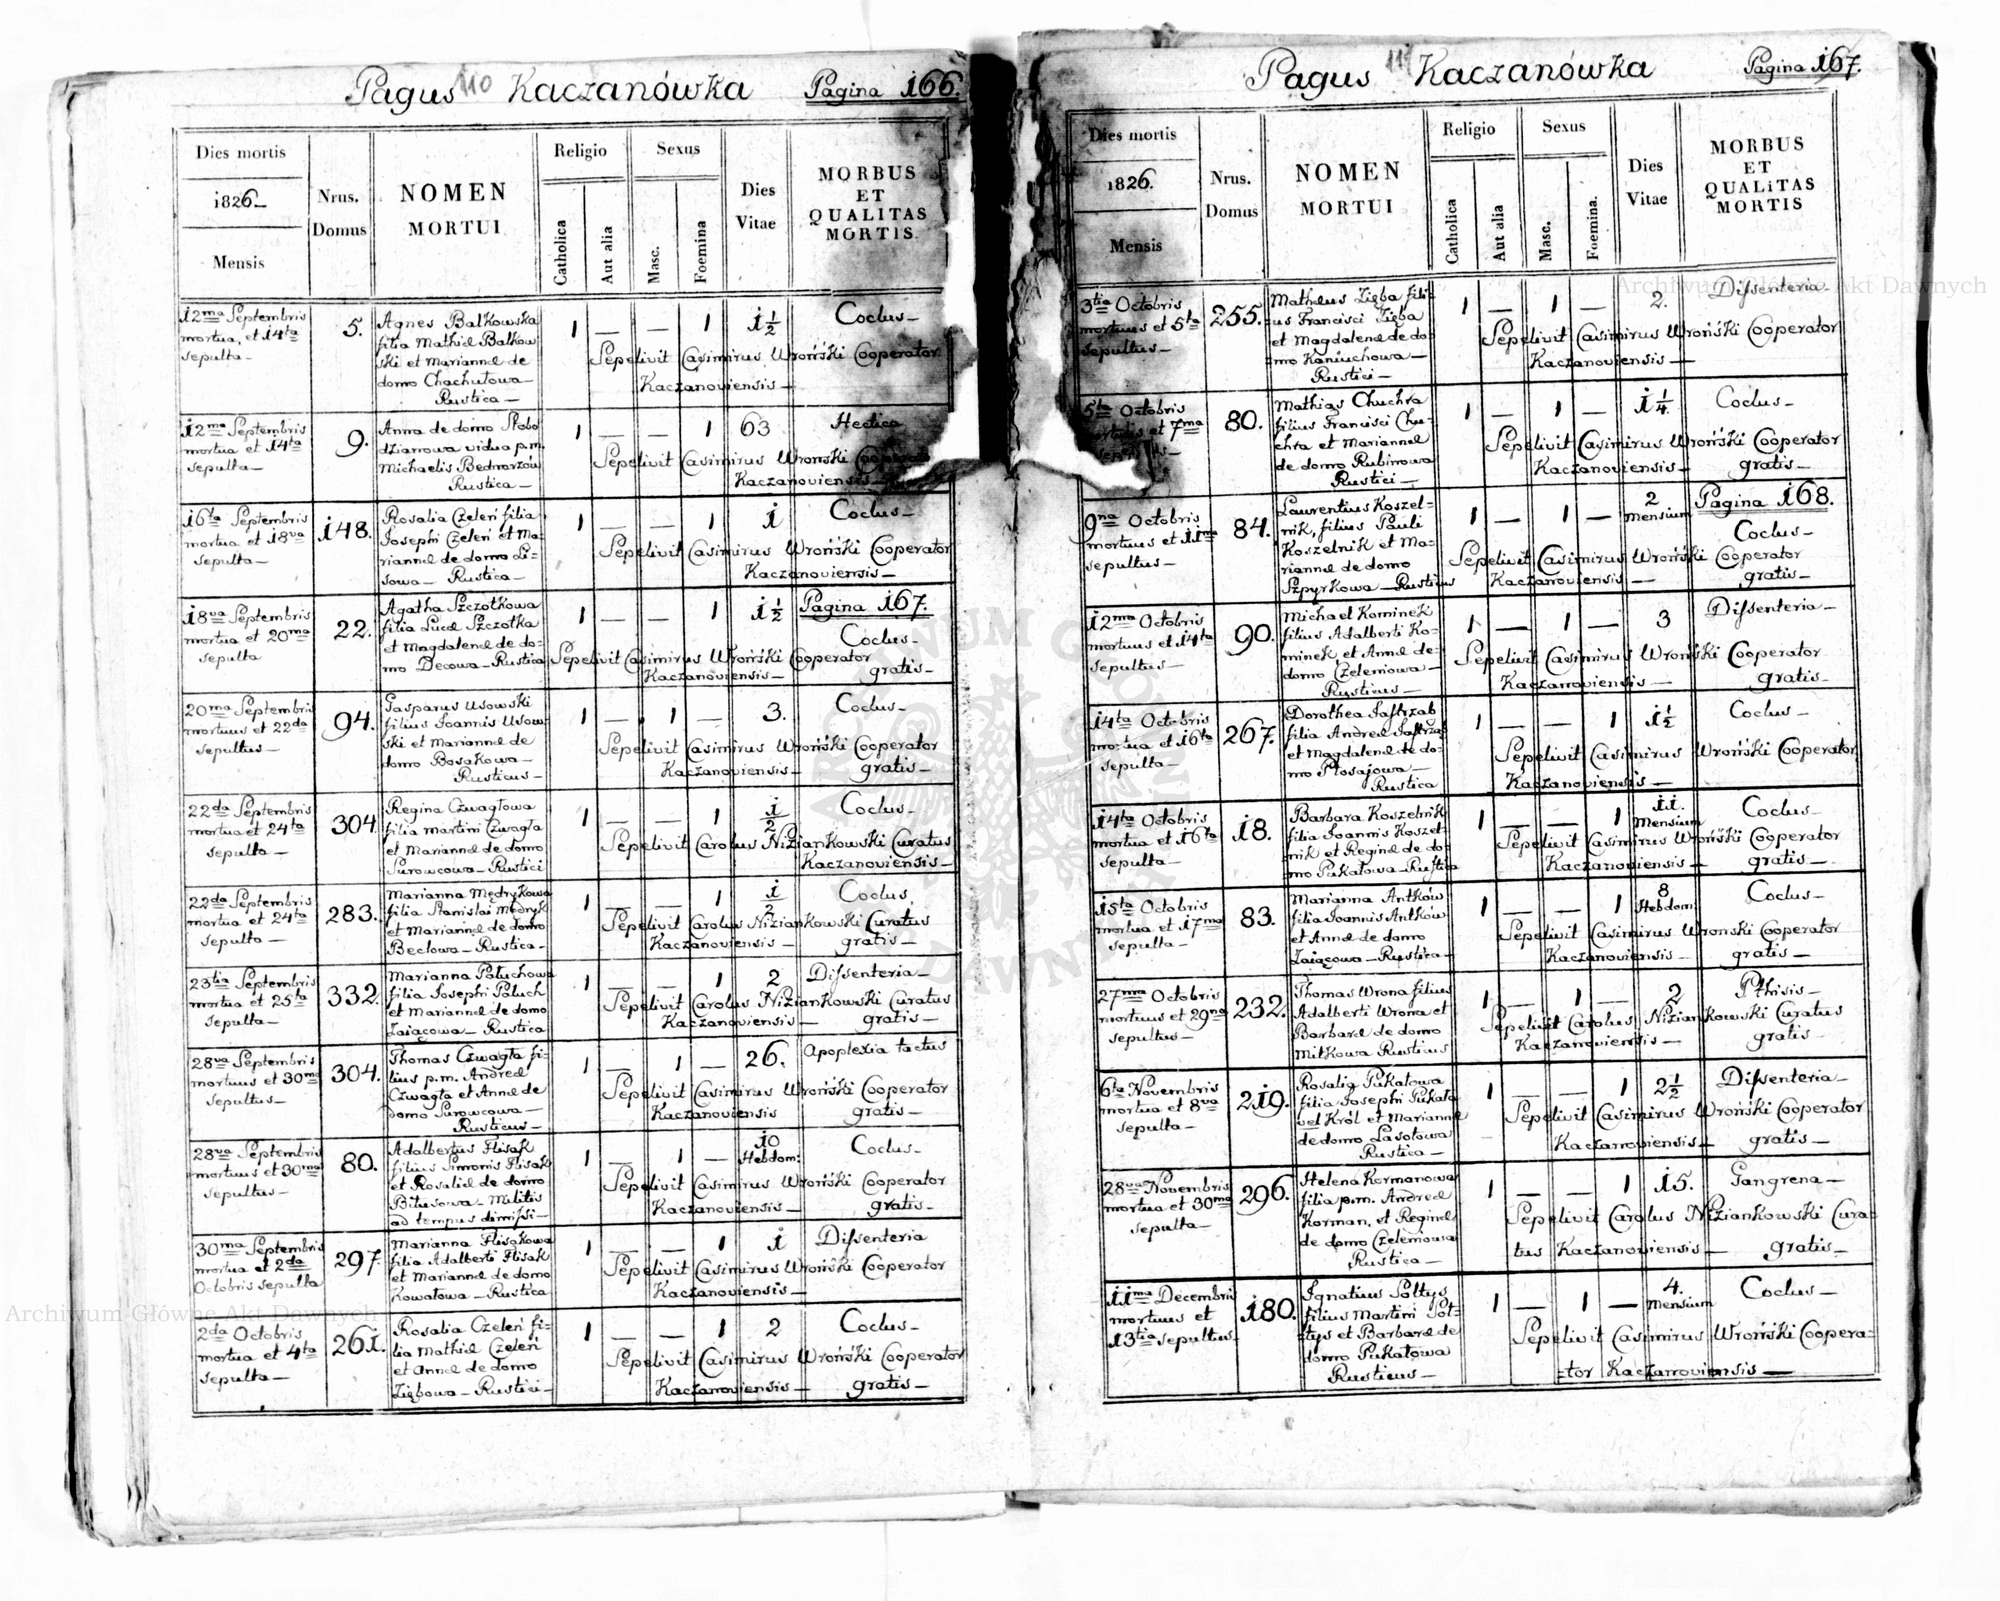 Pagus 110 Kaczanówka Pagina 166.
Dies mortis
1826
Mensis
Nrus. Domus
NOMEN MORTUI
Religio
Catholica
Aut alia
Sexus
Masc.
Foemina
Dies Vitae
MORBUS
ET
QUALITAS
MORTIS
12ma Septembris 5. Agnes Balkowska 1 — — 1 1 1/2 Coclus
mortua, et 14ta filia Mathiæ Balkow
sepulta ski et Mariannæ de Sepelivit Casimirus Wroński Cooperator
domo Chachułowa Kaczanoviensis
Rustica
12ma Septembris 9. Anna de domo Słobo 1 — — 1 63 Hectica
mortua et 14ta dzianowa vidua p.m.
sepulta Michaelis Bednarzów Sepelivit Casimirus Wroński Cooperator
Rustica Kaczanoviensis
16ta Septembris 148. Rosalia Czeleń filia 1 — — 1 1 Coclus
mortua et 18va Josephi Czeleń et Ma-
sepulta riannæ de domo Li= Sepelivit Casimirus Wroński Cooperator
sowa Rustica Kaczanoviensis
18va Septembris 22. Agatha Szczotkowa 1 — — 1 1 1/2 Pagina 167.
mortua et 20ma filia Lucæ Szczotka Coclus
sepulta et Magdalenæ de do-
mo Decowa Rustica Sepelivit Casimirus Wroński Cooperator
Kaczanoviensis gratis
20ma Septembris 94. Gasparus Usowski 1 — 1 — 3. Coclus
mortuus et 22da filius Joannis Usow
sepultus ski et Mariannæ de Sepelivit Casimirus Wroński Cooperator
domo Bosakowa Kaczanoviensis gratis
Rusticus
22da Septembris 304 Regina Czwagłowa 1 — — 1 1/2 Coclus
mortua et 24ta filia Martini Czwagła
sepulta et Mariannæ de domo Sepelivit Carolus Niziankowski Curatus
Surowcowa Rustici Kaczanoviensis
22da Septembris 283. Marianna Mędrykowa 1 — — 1 1/2 Coclus
mortua et 24ta filia Stanislai Mędryk
sepulta et Mariannæ de domo Sepelivit Carolus Niziankowski Curatus
Beclowa Rustica Kaczanoviensis gratis
23tia Septembris 332. Marianna Pałuchowa 1 — — 1 2 Dissenteria
mortua et 25ta filia Josephi Pałuch
sepulta et Mariannæ de domo Sepelivit Carolus Niziankowski Curatus
Zaiącowa Rustica Kaczanoviensis gratis
28va Septembris 304. Thomas Czwagła fi- 1 — 1 — 26. Apoplexia tactus
mortuus et 30ma lius p.m. Andreæ
sepultus Czwagła et Annæ de Sepelivit Casimirus Wroński Cooperator
domo Surowcowa Kaczanoviensis gratis
Rusticus
28va Septembris 80. Adalbertus Flisak 1 — 1 — 10 Hebdom: Coclus
mortuus et 30ma filius Simonis Flisak
sepultus et Rosaliæ de domo Sepelivit Casimirus Wroński Cooperator
Bitusowa Militis Kaczanoviensis gratis
ad tempus dimissi
30ma Septembris 297. Marianna Flisakowa 1 — — 1 1 Dissenteria
mortua et 2da filia Adalberti Flisak
Octobris sepulta et Mariannæ de domo Sepelivit Casimirus Wroński Cooperator
Kowałowa Rustica Kaczanoviensis
2da Octobris 261. Rosalia Czeleń fi- 1 — — 1 2 Coclus
mortua et 4ta lia Mathiæ Czeleń
sepulta et Annæ de domo Sepelivit Casimirus Wroński Cooperator
Ziębowa Rustici Kaczanoviensis gratis
Pagus 111 Kaczanówka Pagina 167.
Dies mortis
1826.
Mensis
Nrus. Domus
NOMEN MORTUI
Religio
Catholica
Aut alia
Sexus
Masc.
Foemina.
Dies Vitae
MORBUS
ET
QUALITAS
MORTIS
3tia Octobris 255. Mathæus Zięba fili- 1 — 1 — 2. Dissenteria
mortuus et 5ta us Francisci Zięba
sepultus et Magdalenæ de do- Sepelivit Casimirus Wroński Cooperator
mo Kaniuchowa Kaczanoviensis
Rustici
5ta Octobris 80. Mathias Chuchra 1 — 1 — 1 1/4. Coclus
mortuus et 7ma filius Francisci Chu-
sepultus chra et Mariannæ Sepelivit Casimirus Wroński Cooperator
de domo Rubinowa Kaczanoviensis gratis
Rustici
9na Octobris 84. Laurentius Koszel- 1 — 1 — 2 Mensium Pagina 168.
mortuus et 11ma nik, filius Pauli Coclus
sepultus Koszelnik et Ma- Sepelivit Casimirus Wroński Cooperator
riannæ de domo Kaczanoviensis gratis
Szpyrkowa Rusticus
12ma Octobris 90. Michael Kominek 1 — 1 — 3 Dissenteria
mortuus et 14ta filius Adalberti Ko-
sepultus minek et Annæ de Sepelivit Casimirus Wroński Cooperator
domo Czeleniowa Kaczanoviensis gratis
Rusticus
14ta Octobris 267. Dorothea Jastrząb 1 — — 1 1 1/2 Coclus
mortua et 16ta filia Andreæ Jastrząb
sepulta et Magdalenæ de do- Sepelivit Casimirus Wroński Cooperator
mo Płosajowa Kaczanoviensis
Rustica
14ta Octobris 18. Barbara Koszelnik 1 — — 1 11. Mensium Coclus
mortua et 16ta filia Joannis Koszel-
sepulta nik et Reginæ de do- Sepelivit Casimirus Wroński Cooperator
mo Pukałowa Rustica Kaczanoviensis gratis
15ta Octobris 83. Marianna Antków 1 — — 1 8 Hebdom: Coclus
mortua et 17ma filia Joannis Antków
sepulta et Annæ de domo Sepelivit Casimirus Wroński Cooperator
Zaiącowa Rustica Kaczanoviensis gratis
27ma Octobris 232. Thomas Wrona filius 1 — 1 — 2 Pthisis
mortuus et 29na Adalberti Wrona et
sepultus Barbaræ de domo Sepelivit Carolus Niziankowski Curatus
Mitkowa Rusticus Kaczanoviensis gratis
6ta Novembris 219. Rosalia Pukałowa 1 — — 1 2 1/2 Dissenteria
mortua et 8va filia Josephi Pukała
sepulta vel Król et Mariannæ Sepelivit Casimirus Wroński Cooperator
de domo Lasotowa Kaczanoviensis gratis
Rustica
28va Novembris 296. Helena Kormanowa 1 — — 1 15. Gangrena
mortua et 30ma filia p.m. Andreæ
sepulta Korman, et Reginæ Sepelivit Carolus Niziankowski Cura-
de domo Czeleniowa tus Kaczanoviensis gratis
Rustica
11ma Decembris 180. Ignatius Sołtys 1 — 1 — 4. Mensium Coclus
mortuus et filius Martini Soł-
13tia sepultus tys et Barbaræ de Sepelivit Casimirus Wroński Coopera=
domo Pukałowa =tor Kaczanoviensis
Rusticus
Archiwum Główne Akt Dawnych
Archiwum Główne Akt Dawnych